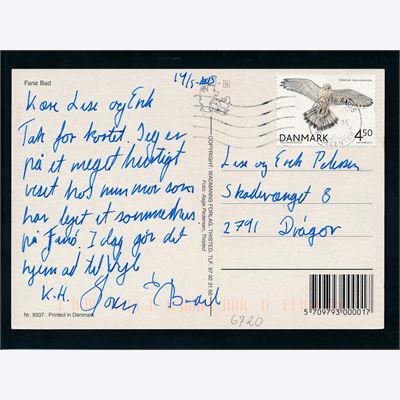 Fanø Bad
19/5-2005
Kære Lise og Erik
Tak for kortet. Jeg er
på et meget hurtigt
visit hos min mor som
har lejet et sommerhus
på Fanø. I dag går det
hjem ad til Vejle
K.H.
Nr. 9337 . Printed in Denmark
COPYRIGHT: WUGMANNS FORLAG, THISTED, TLF. 97 92 31 66
Foto: Aage Pedersen, Thisted
DANMARK
4,50
Lise og Erik Petersen
Skadevænget 8
2791 Dragør
5 709793 000017
6720